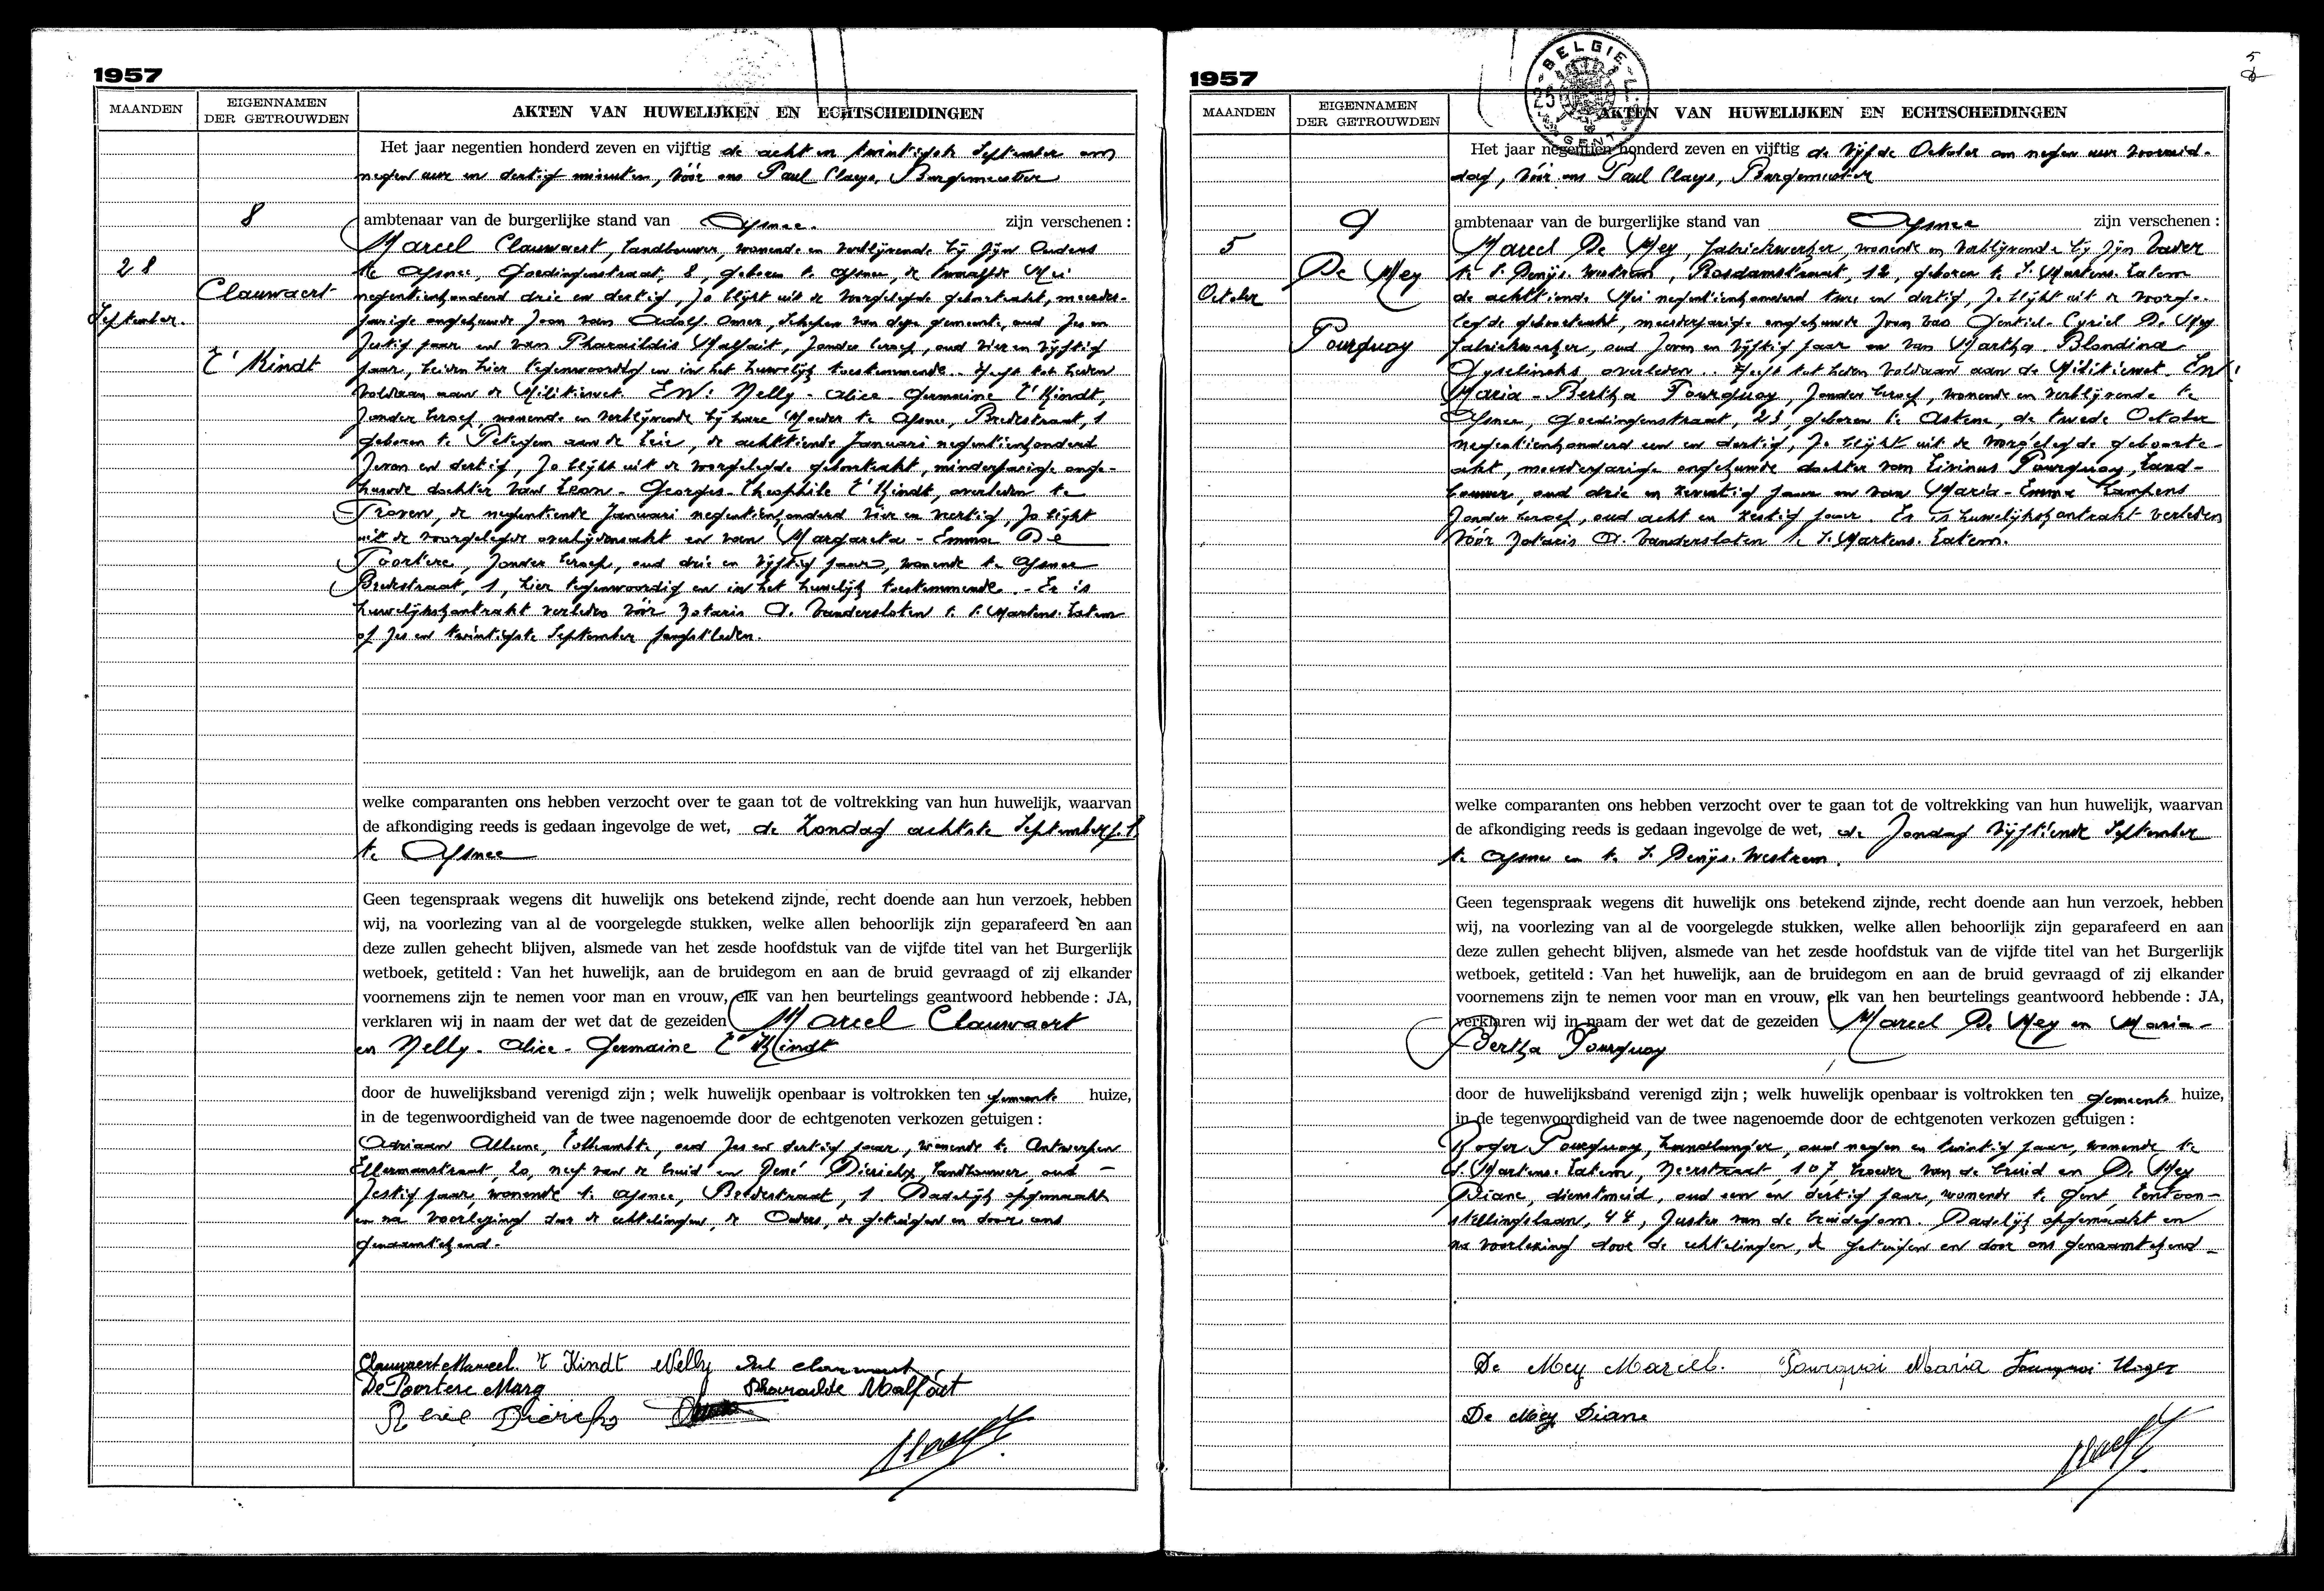 1957
MAANDEN
EIGENNAMEN
DER GETROUWDEN
AKTEN VAN HUWELIJKEN EN ECHTSCHEIDINGEN
8
28
September.
Clauwaert
T' Kindt
Het jaar negentien honderd zeven en vijftig de acht en twintigste September om
negen uur en dertig minuten, vóór ons Paul Claeys, Burgemeester
ambtenaar van de burgerlijke stand van Afsnee. zijn verschenen :
Marcel Clauwaert, landbouwer, wonende en verblijvende bij zijn Ouders
te Afsnee, Goedingenstraat, 8, geboren te Afsnee, de twaalfde Mei
negentienhonderd drie en dertig, zo blijkt uit de voorgelegde geboorteakt, meerder-
jarige ongehuwde zoon van Adolf-Omer, Schepen van deze gemeente, oud zes en
zestig jaar en van Pharaildis Malfait, zonder beroep, oud vier en vijftig
jaar, beiden hier tegenwoordig en in het huwelijk toestemmende. Heeft tot heden
voldaan aan de Militiewet EN: Nelly - Alice - Germaine T'Kindt,
zonder beroep, wonende en verblijvende bij hare Moeder te Afsnee, Bredestraat, 1
geboren te Petegem aan de Leie, de achttiende Januari negentienhonderd
zeven en dertig, zo blijkt uit de voorgelegde geboorteakt, minderjarige onge-
huwde dochter van Leon - Georges - Theophile T'Kindt, overleden te
Tronen, de negentiende Januari negentienhonderd vier en veertig, zo blijkt
uit de voorgelegde overlijdensakt en van Margareta - Emma De
Poortere, zonder beroep, oud drie en vijftig jaar, wonende te Afsnee
Bredestraat, 1, hier tegenwoordig en in het huwelijk toestemmende. - Er is
huwelijkskontrakt verleden vóór Notaris A. Vandersloten te S. Martens-Latem
op zes en twintigste September jongstleden.
welke comparanten ons hebben verzocht over te gaan tot de voltrekking van hun huwelijk, waarvan
de afkondiging reeds is gedaan ingevolge de wet, de Zondag achtste September j.l.
te Afsnee
Geen tegenspraak wegens dit huwelijk ons betekend zijnde, recht doende aan hun verzoek, hebben
wij, na voorlezing van al de voorgelegde stukken, welke allen behoorlijk zijn geparafeerd en aan
deze zullen gehecht blijven, alsmede van het zesde hoofdstuk van de vijfde titel van het Burgerlijk
wetboek, getiteld : Van het huwelijk, aan de bruidegom en aan de bruid gevraagd of zij elkander
voornemens zijn te nemen voor man en vrouw, elk van hen beurtelings geantwoord hebbende : JA,
verklaren wij in naam der wet dat de gezeiden Marcel Clauwaert
en Nelly - Alice - Germaine T'Kindt
door de huwelijksband verenigd zijn ; welk huwelijk openbaar is voltrokken ten gemeente huize,
in de tegenwoordigheid van de twee nagenoemde door de echtgenoten verkozen getuigen :
Adriaan Alleene, Tolbeambte, oud zes en dertig jaar, wonende te Antwerpen
Ellermanstraat, 20, neef van de bruid en René Dierickx, landbouwer, oud
zestig jaar, wonende te Afsnee, Bredestraat, 1 Dadelijk opgemaakt
en na voorlezing door de echtelingen, de Ouders, de getuigen en door ons
genaamtekend.
Clauwaert Marcel. 't Kindt Nelly
De Poortere Marg Pharailde Malfait
René Dierickx
1957
BELGIE
GENT
MAANDEN
EIGENNAMEN
DER GETROUWDEN
AKTEN VAN HUWELIJKEN EN ECHTSCHEIDINGEN
9
5
October
De Mey
Pourquoy
Het jaar negentien honderd zeven en vijftig de vijfde October om negen uur voormid-
dag, vóór ons Paul Claeys, Burgemeester
ambtenaar van de burgerlijke stand van Afsnee zijn verschenen :
Marcel De Mey, fabriekwerker, wonende en verblijvende bij zijn Vader
te S. Denijs-Westrem, Rosdamstraat, 12, geboren te S. Martens-Latem
de achttiende Mei negentienhonderd twee en dertig, zo blijkt uit de voorge-
legde geboorteakt, meerderjarige ongehuwde zoon van Gentiel-Cyriel De Mey
fabriekwerker, oud zeven en vijftig jaar en van Martha-Blondina
Gyselincks overleden. Heeft tot heden voldaan aan de Militiewet. EN:
Maria - Bertha Pourquoy, zonder beroep, wonende en verblijvende te
Afsnee, Goedingenstraat, 23, geboren te Astene, de tweede October
negentienhonderd een en dertig, zo blijkt uit de voorgelegde geboorte-
akt, meerderjarige ongehuwde dochter van Livinus Pourquoy, land-
bouwer, oud drie en zeventig jaar en van Maria-Emma Lampens
zonder beroep, oud acht en zestig jaar. Er is huwelijkskontrakt verleden
vóór Notaris A. Vandersloten te S. Martens-Latem.
welke comparanten ons hebben verzocht over te gaan tot de voltrekking van hun huwelijk, waarvan
de afkondiging reeds is gedaan ingevolge de wet, de Zondag vijftiende September
te Afsnee en te S. Denijs-Westrem.
Geen tegenspraak wegens dit huwelijk ons betekend zijnde, recht doende aan hun verzoek, hebben
wij, na voorlezing van al de voorgelegde stukken, welke allen behoorlijk zijn geparafeerd en aan
deze zullen gehecht blijven, alsmede van het zesde hoofdstuk van de vijfde titel van het Burgerlijk
wetboek, getiteld : Van het huwelijk, aan de bruidegom en aan de bruid gevraagd of zij elkander
voornemens zijn te nemen voor man en vrouw, elk van hen beurtelings geantwoord hebbende : JA,
verklaren wij in naam der wet dat de gezeiden Marcel De Mey en Maria -
Bertha Pourquoy
door de huwelijksband verenigd zijn ; welk huwelijk openbaar is voltrokken ten gemeente huize,
in de tegenwoordigheid van de twee nagenoemde door de echtgenoten verkozen getuigen :
Roger Pourquoy, handlanger, oud negen en twintig jaar, wonende te
S. Martens-Latem, Neerstraat, 107, broeder van de bruid en De Mey
Diane, dienstmeid, oud een en dertig jaar, wonende te Gent, Tentoon-
stellingslaan, 44, zuster van de bruidegom. Dadelijk opgemaakt en
na voorlezing door de echtelingen, de getuigen en door ons genaamtekend -
De Mey Marcel. Pourquoi Maria Pourquoi Roger
De Mey Diane